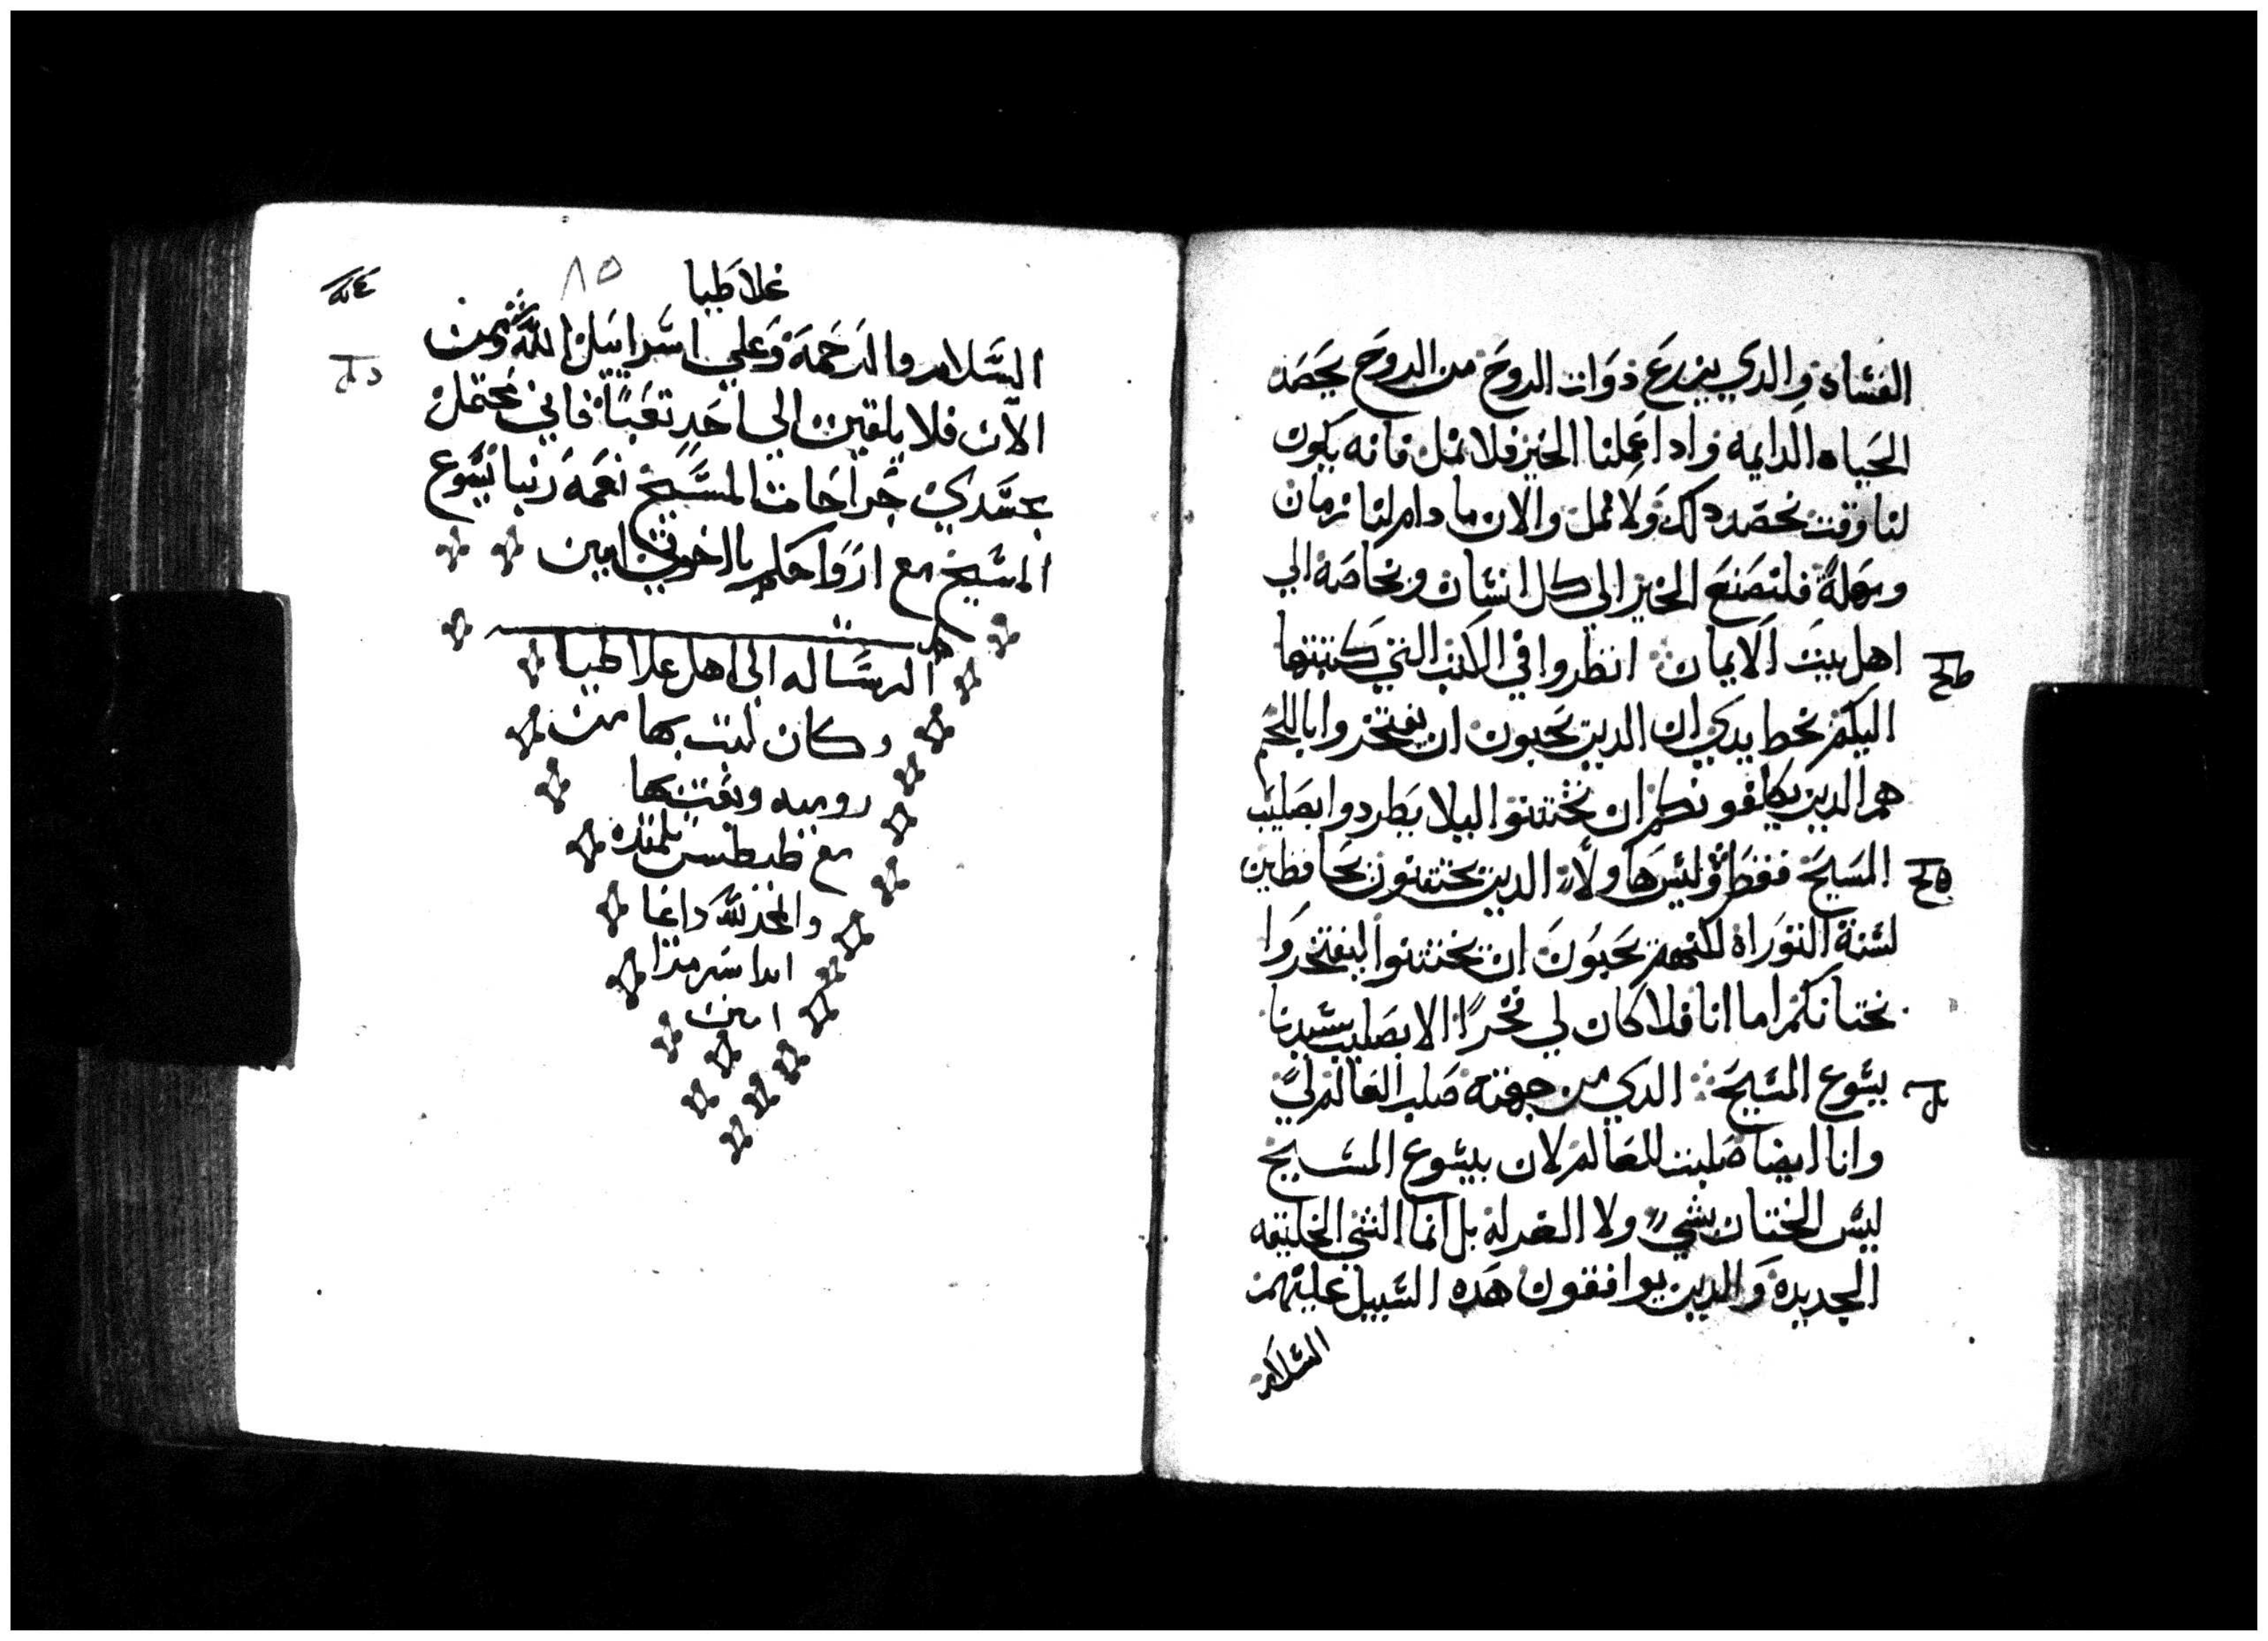 الفساد والدي يزرع ذوات الروح من الروح يحصد
الحياه الدايمه واداعملنا الخير فلا نمل فانه يكون
لنا وقت نحصد دلك ولا نمل والان ما دام لنا زمان
ومهلة فلنصنع الخير الي كل انسان وبخاصة الي
اهل بيت الايمان انظروا في الكتب التي كتبتها
اليكم بخط يدي ان الدين يحبون ان يفتخروا باللحم
هم الدين يكلفونكم ان تختتنوا ليلا يطردوا بصليب
المسيح فقط وليس ها ولاء الدين يختتنون بحافظين
لسنة التوراة لكنهم يحبون ان تختتنوا ليفتخروا
بختانكم اما انا فلا كان لي فخرًا الا بصليب سيدنا
يسوع المسيح الدي من جهته صلب العالم لي
وانا ايضا صلبت للعالم لان بيسوع المسيح
ليس الختان بشي ولا الغرلة بل انما الشي الخليقه
الجديدة والدين يوافقون هده السبيل عليهم
السلام
غلاطيا
٨٥
السلام والرحمة وعلي اسراييل الله ومن
الآن فلا يلقين الي احد تعبًا فاني محتمل
بجسدي جراحات المسيح نعمة ربنا يسوع
المسيح مع ارواحكم يا اخوتي امين
الرساله الي اهل غلاطيا
وكان كتب بها من
روميه وبعت بها
مع طيطس تلميده
والمجد لله دايما
ابدا سرمدا
امين